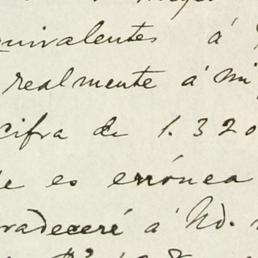 equivalentes á
realmente á mi
cifra de 1.320
e es errónea
radeceré á Ud.